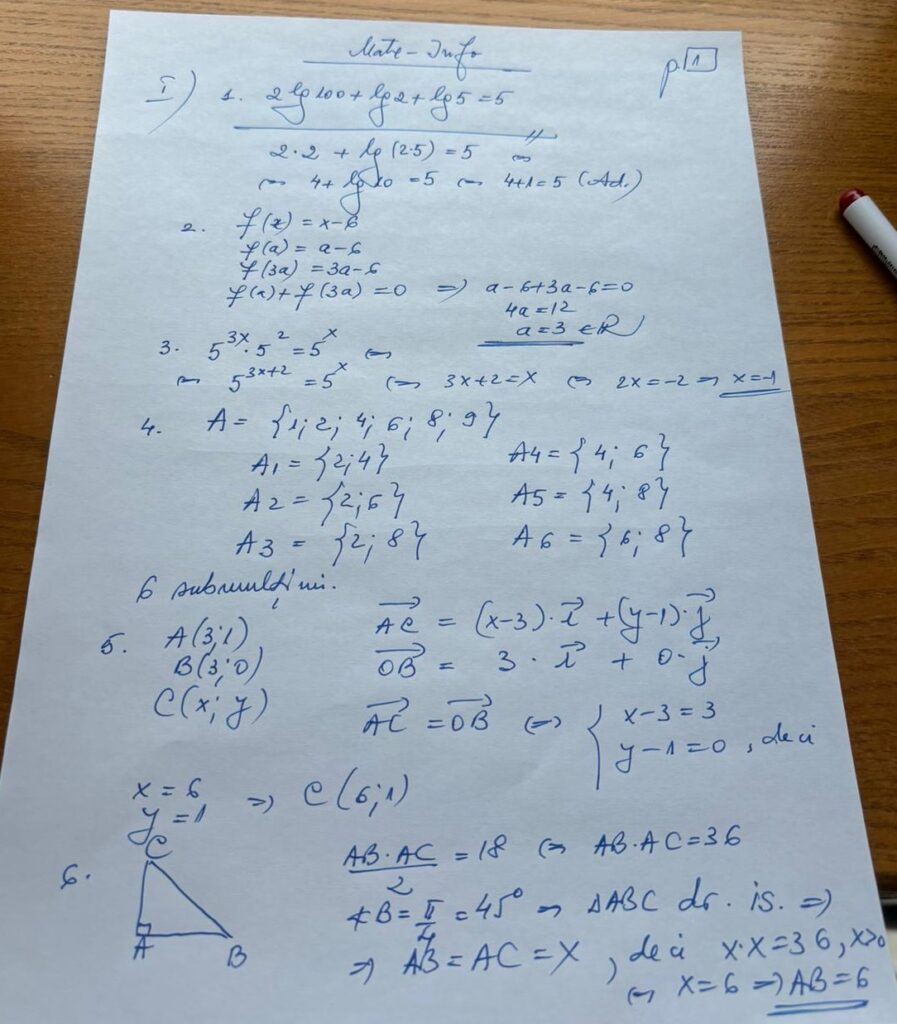 Mate-Info
p. 1
I) 1. 2 lg 100 + lg 2 + lg 5 = 5
2·2 + lg (2·5) = 5 ⇔
⇔ 4 + lg 10 = 5 ⇔ 4+1=5 (Ad.)
2. f(x) = x-6
f(a) = a-6
f(3a) = 3a-6
f(a) + f(3a) = 0 ⇒ a-6+3a-6=0
4a=12
a=3 ∈ R
3. 5^{3x} · 5^2 = 5^x ⇔
⇔ 5^{3x+2} = 5^x ⇔ 3x+2=x ⇔ 2x=-2 ⇒ x=-1
4. A = {1; 2; 4; 6; 8; 9}
A1 = {2;4} A4 = {4; 6}
A2 = {2;6} A5 = {4; 8}
A3 = {2; 8} A6 = {6; 8}
6 submulțimi.
5. A(3;1) \overrightarrow{AC} = (x-3)·\vec{i} + (y-1)·\vec{j}
B(3;0) \overrightarrow{OB} = 3·\vec{i} + 0·\vec{j}
C(x; y) \overrightarrow{AC} = \overrightarrow{OB} ⇔ { x-3=3
y-1=0, deci
x = 6
y = 1 ⇒ C(6;1)
6. C A B
AB·AC/2 = 18 ⇔ AB·AC=36
∢B = π/4 = 45° ⇒ ΔABC dr. is. ⇒
⇒ AB = AC = x, deci x·x=36, x>0
⇔ x=6 ⇒ AB=6